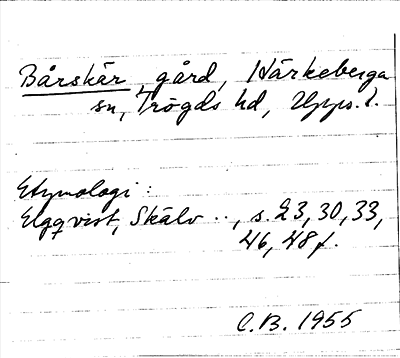 Bårskär, gård, Härkeberga
sn, Trögds hd, Upps. l.
Etymologi :
Elgqvist, Skälv .., s. 23, 30, 33,
46, 48 f.
C.B. 1955